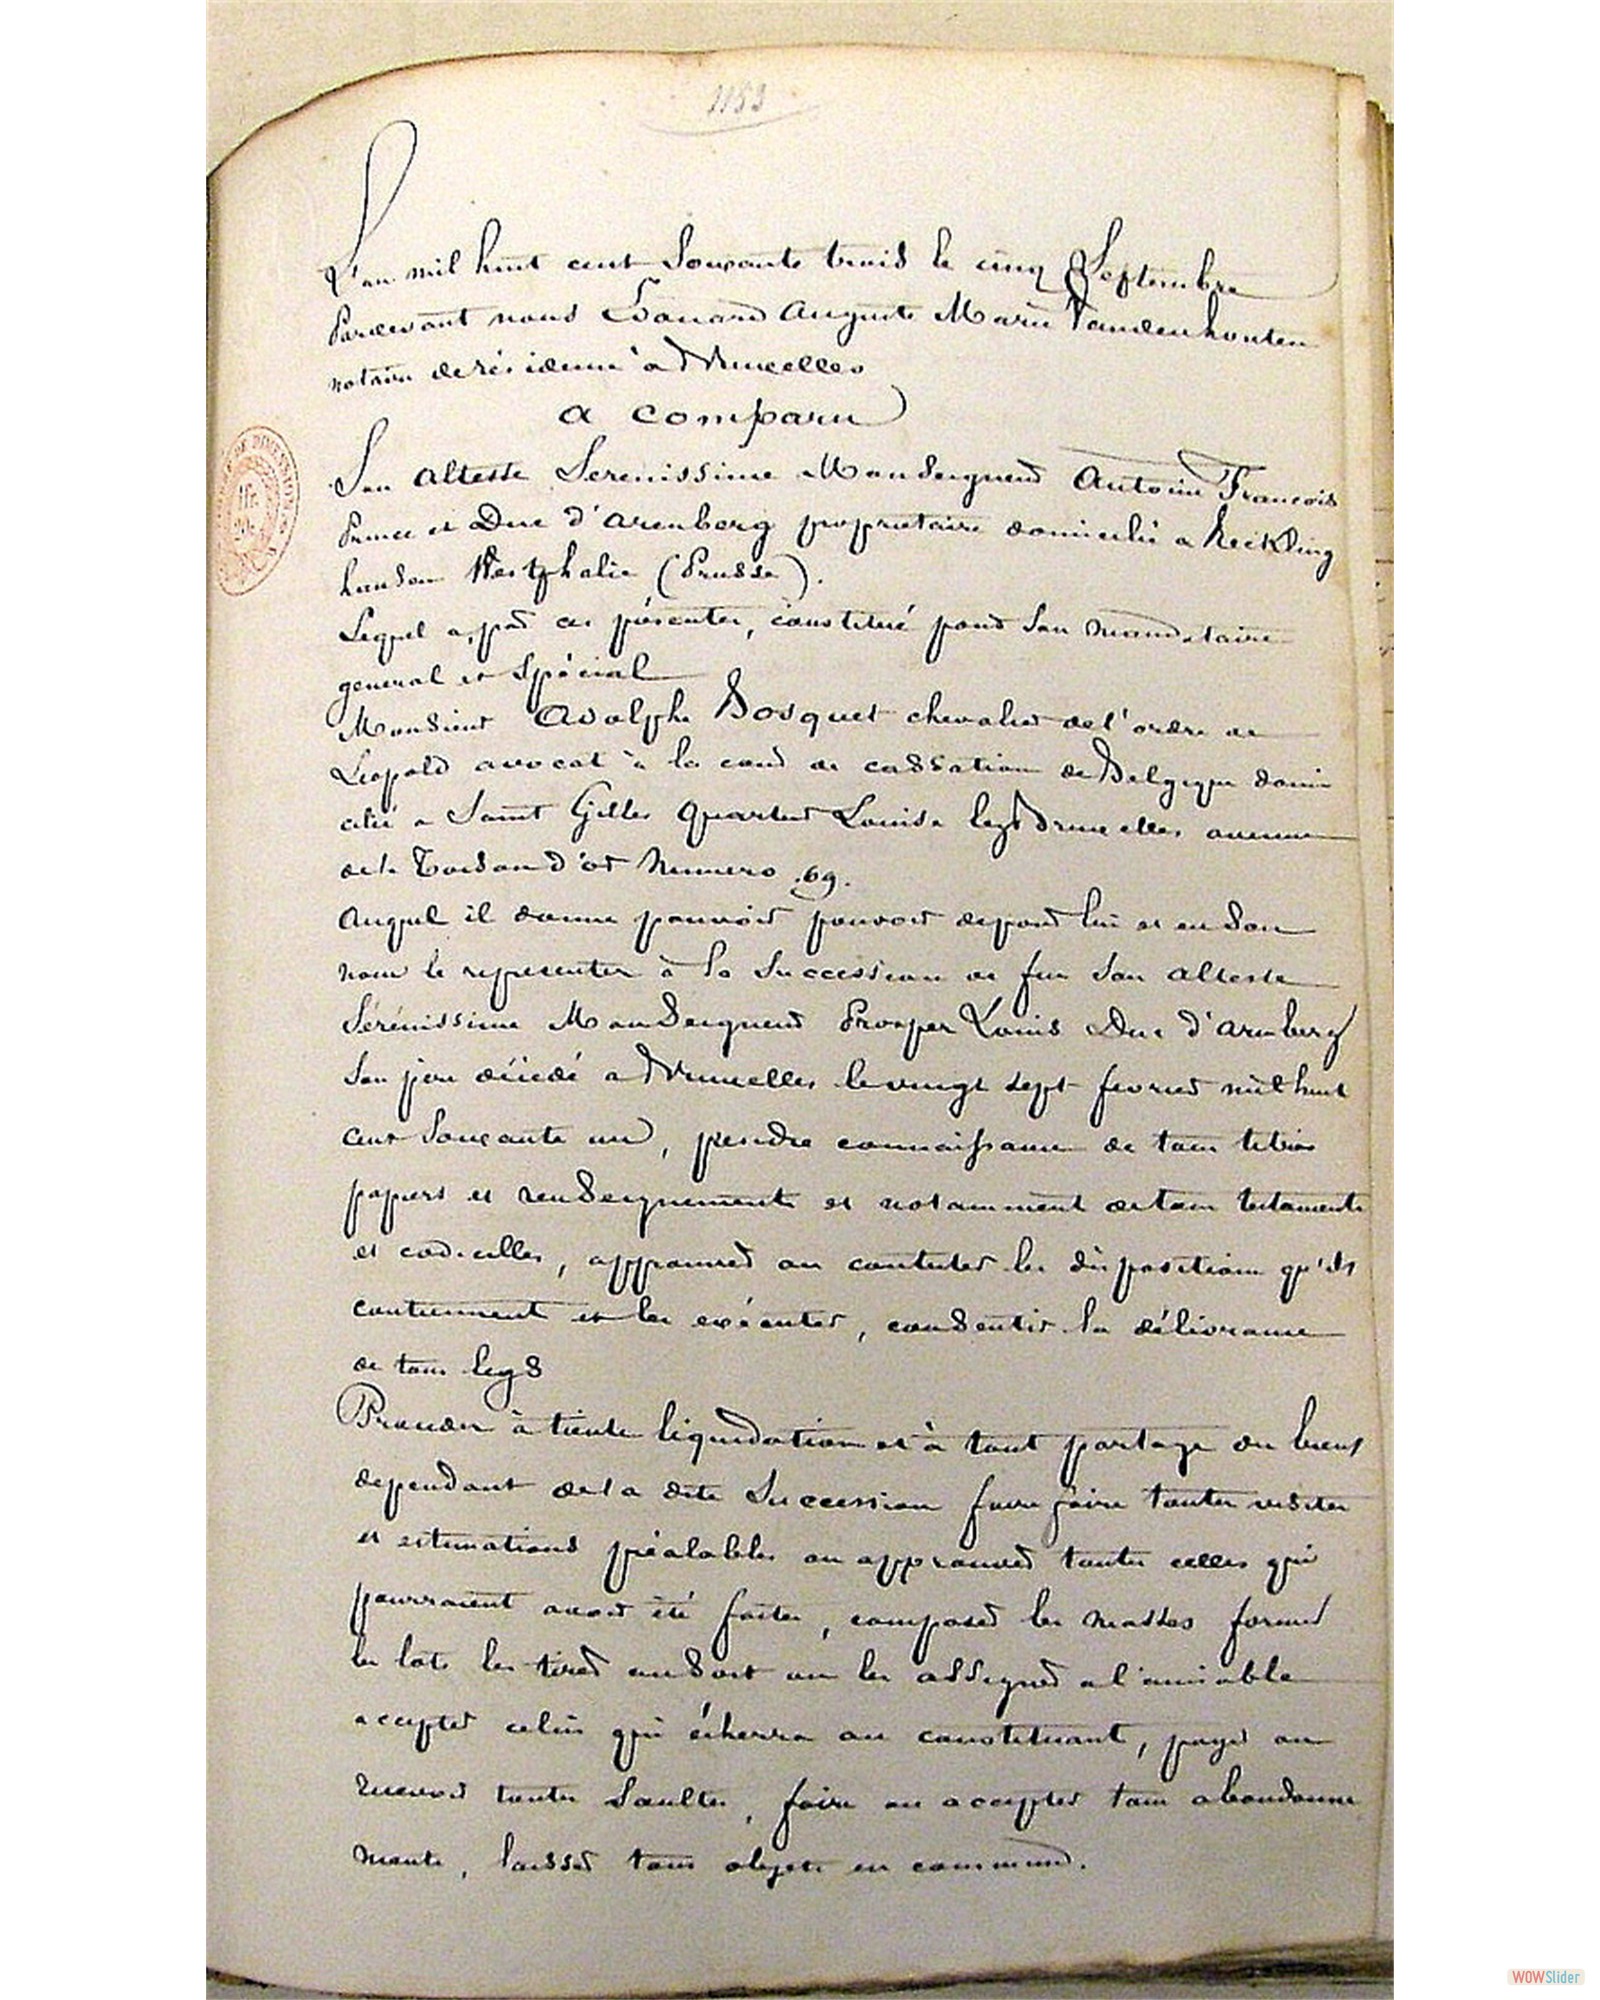 1153
L'an mil huit cent soixante trois le cinq Septembre
Pardevant nous Edouard Auguste Marie Vandenhouten
notaire de résidence à Bruxelles
a comparu
Son Altesse Serenissime Monseigneur Antoine François
Prince et Duc d'Arenberg proprietaire domicilié a Reckling
hausen Westphalie (Prusse).
Lequel a, par ces présentes, constitué pour son mandataire
general et spécial
Monsieur Adolphe Bosquet chevalier de l'ordre de
Léopold avocat à la cour de cassation de Belgique domi
cilié a Saint Gilles quartier Louise lez Bruxelles avenue
de la Toison d'or numero 69.
Auquel il donne pouvoir pouvoir de pour lui et en son
nom le representer à la succession de feu son altesse
Sérénissime Monseigneur Prosper Louis Duc d'Arenberg
son père décédé a Bruxelles le vingt sept fevrier mil huit
cent soixante un, prendre connaissance de tous titres
papiers et renseignements et notamment de tous testaments
et codicilles, approuver ou contester les dispositions qu'ils
contiennent et les exécuter, consentir la délivrance
de tous legs
Proceder à toute liquidation et à tout partage des biens
dependant de la dite succession faire faire toutes visites
et estimations préalables ou approuver toutes celles qui
pourraient avoir été faites, composer les masses former
les lots les tirer au sort ou les assigner a l'amiable
accepter celui qui écherra au constituant, payer ou
recevoir toutes soultes, faire ou accepter tous abandonne
ments, laisser tous objets en commun.
WOWSlider